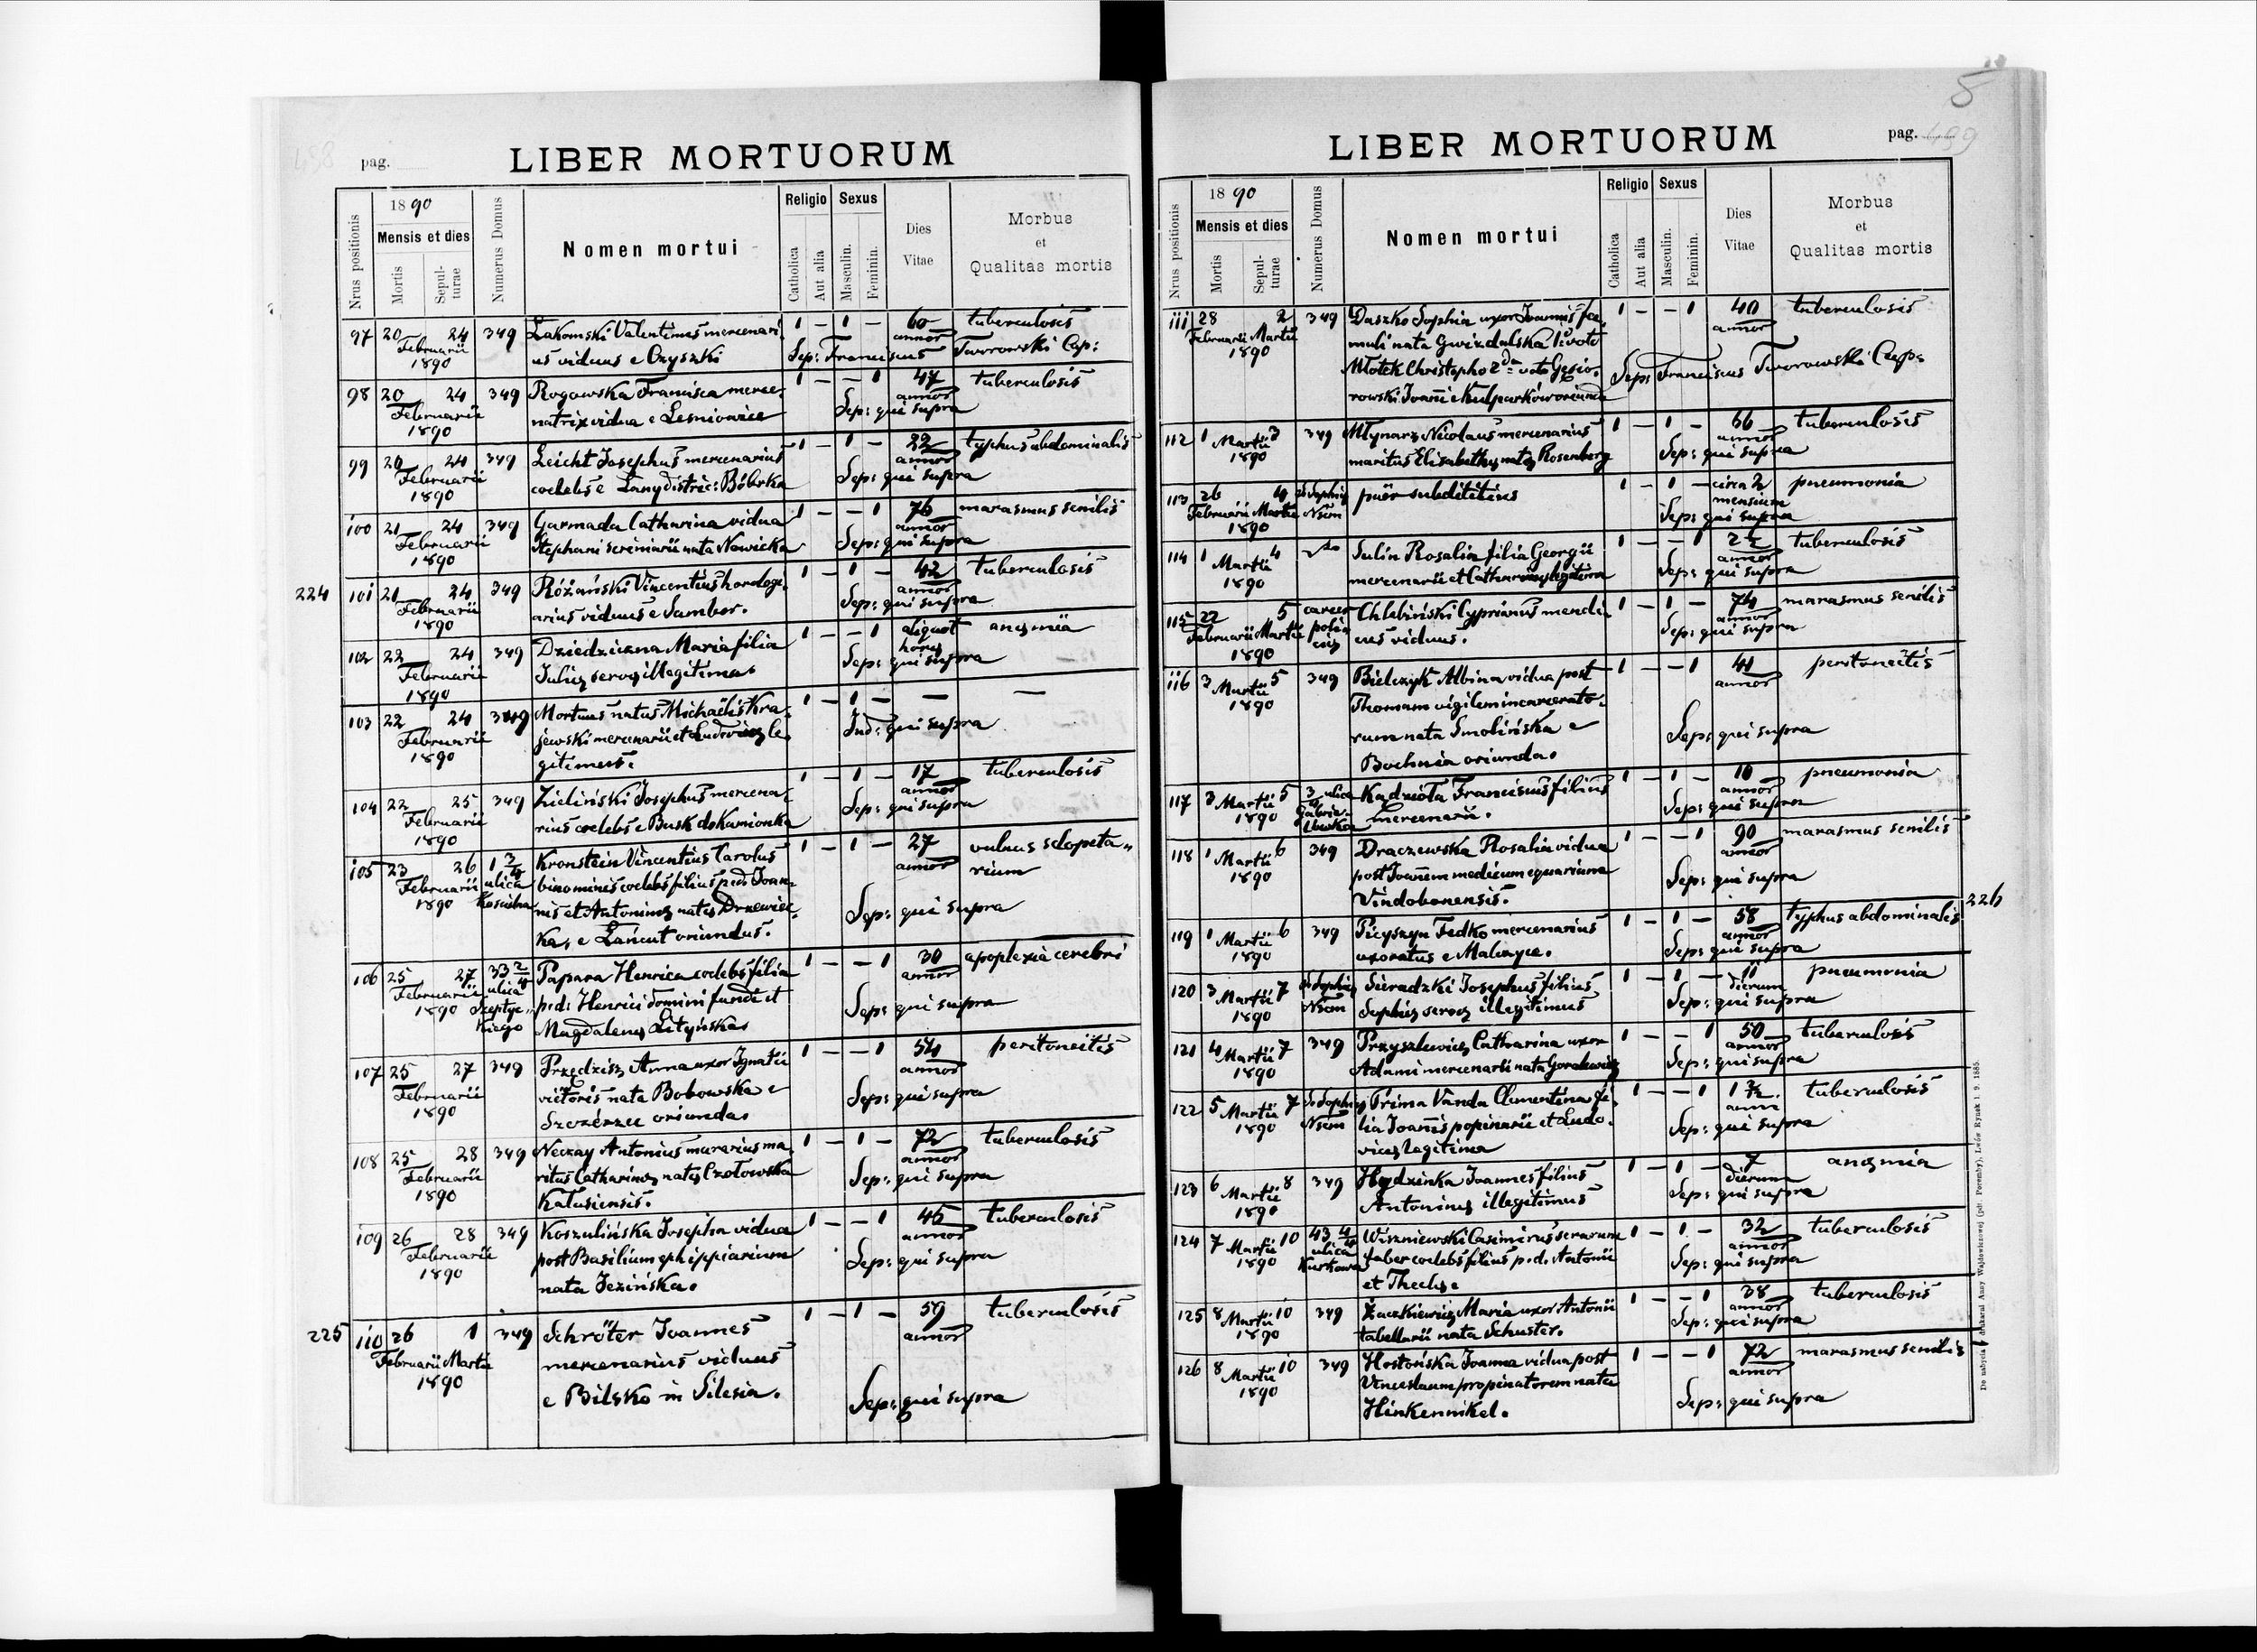 pag.
LIBER MORTUORUM
Nrus positionis
1890
Mensis et dies
Mortis
Sepulturae
Numerus Domus
Nomen mortui
Religio
Catholica
Aut alia
Sexus
Masculin.
Feminin.
Dies
Vitae
Morbus
et
Qualitas mortis
97 20 24 349 Łakomski Valentinus mercenari 1 – 1 – 60 tuberculosis
Februarii annor
1890 us viduus e Czyszki Sep: Franciscus Tworowski Cap:
98 20 24 349 Rogowska Francisca merce 1 – – 1 47 tuberculosis
Februarii annor
1890 natrix vidua e Lesniowice Sep: qui supra
99 20 24 349 Leicht Josephus mercenarius 1 – 1 – 22 typhus abdominalis
Februarii annor
1890 coelebs e Łany distric: Bóbrka Sep: qui supra
100 21 24 349 Garmada Catharina vidua 1 – – 1 76 marasmus senilis
Februarii annor
1890 Stephani scriniarii nata Nowicka Sep: qui supra
224 101 21 24 349 Różański Vincentius horologi 1 – 1 – 42 tuberculosis
Februarii annor
1890 arius viduus e Sambor. Sep: qui supra
102 22 24 349 Dziedziczna Maria filia 1 – – 1 aliquot anęmia
Februarii horę
1890 Julię servę illegitima. Sep: qui supra
103 22 24 349 Mortuus natus Michaëlis Kra 1 – 1 – — —
Februarii jewski mercenarii et Ludovicę le Ind: qui supra
1890 gitimus.
104 22 25 349 Zieliński Josephus mercena 1 – 1 – 17 tuberculosis
Februarii annor
1890 rius coelebs e Busk do Kamionka Sep: qui supra
105 23 26 1 3/4 Kronstein Vincentius Carolus 1 – 1 – 27 vulnus sclopeta
Februarii ulica binominis coelebs filius p.d. Joan annor rium
1890 nis et Antoninę natę Drzewiec Sep: qui supra
ka, e Łańcut oriundus.
106 25 27 33 2/4 Papara Henrica coelebs filia 1 – – 1 30 apoplexia cerebri
Februarii ulica p:d: Henrici domini fundi et annor
1890 Szeptyc
kiego Magdalenę Lityńska Sep: qui supra
107 25 27 349 Przędzisz Anna uxor Ignatii 1 – – 1 54 peritoneitis
Februarii victoris nata Bobowska e annor
1890 Szczérzec oriunda. Sep: qui supra
108 25 28 349 Neczay Antonius murarius ma 1 – 1 – 72 tuberculosis
Februarii ritus Catharinę natę Czołowska annor
1890 Kałusiensis. Sep: qui supra
109 26 28 349 Koszulińska Josepha vidua 1 – – 1 46 tuberculosis
Februarii post Basilium ephippiarium annor
1890 nata Jezińska. Sep: qui supra
225 110 26 1 349 Schröter Joannes 1 – 1 – 59 tuberculosis
Februarii Martii mercenarius viduus annor
1890 e Bilsko in Silesia. Sep: qui supra
5
pag. 499
LIBER MORTUORUM
Nrus positionis
1890
Mensis et dies
Mortis
Sepulturae
Numerus Domus
Nomen mortui
Religio
Catholica
Aut alia
Sexus
Masculin.
Feminin.
Dies
Vitae
Morbus
et
Qualitas mortis
111 28 2 349 Daszko Sophia uxor Joannis fa 1 – – 1 40 tuberculosis
Februarii Martii muli nata Gwizdalska 1voto annor
1890 Młotek Christopho 2do voto Gęsio Sep: Franciscus Tworowski Cap:
rowski Joanni e Kulparków oriunda
112 1 3 349 Młynarz Nicolaus mercenarius 1 – 1 – 66 tuberculosis
Martii annor
1890 maritus Elisabethę natę Rosenberg Sep: qui supra
113 26 4 puër subdititius 1 – 1 – circa 2 pneumonia
Februarii Martii mensium
1890 Sep: qui supra
114 1 4 Sulin Rosalia filia Georgii 1 – – 1 2 1/2 tuberculosis
Martii annor
1890 mercenarii et Catharinę legitima Sep: qui supra
115 22 5 carcer Chlebiński Cyprianus mendi 1 – 1 – 74 marasmus senilis
Februarii Martii poli annor
1890 cię cus viduus. Sep: qui supra
116 3 5 349 Bielczyk Albina vidua post 1 – – 1 41 peritoneitis
Martii Thomam vigilem incarcerato annor
1890 rum nata Smolińska e Sep: qui supra
Bochnia oriunda.
117 3 5 3 ulica Kądzioła Franciscus filius 1 – 1 – 10 pneumonia
Martii annor
1890 mercenarii. Sep: qui supra
118 1 6 349 Draczewska Rosalia vidua 1 – – 1 90 marasmus senilis
Martii post Joannem medicum equarium annor
1890 Vindobonensis. Sep: qui supra
226
119 1 6 349 Picyszyn Fedko mercenarius 1 – 1 – 58 typhus abdominalis
Martii annor
1890 uxoratus e Malczyce. Sep: qui supra
120 3 7 Sieradzki Josephus filius 1 – 1 – 11 pneumonia
Martii dierum
1890 Sophię servę illegitimus Sep: qui supra
121 4 7 349 Przyszlewicz Catharina uxor 1 – – 1 50 tuberculosis
Martii annor
1890 Adami mercenarii nata Goralewicz Sep: qui supra
122 5 7 Prima Vanda Clementina fi 1 – – 1 1 1/2 tuberculosis
Martii lia Joannis popinarii et Ludo anni
1890 vicę legitima Sep: qui supra
123 6 8 349 Hydzinka Joannes filius 1 – 1 – 7 anęmia
Martii dierum
1890 Antoninę illegitimus Sep: qui supra
124 7 10 43 4/4 Wiszniewski Casimirus serarum 1 – 1 – 32 tuberculosis
Martii ulica faber coelebs filius p.d. Antonii annor
1890 Kurkowa et Theclę. Sep: qui supra
125 8 10 349 Żaczkiewicz Maria uxor Antonii 1 – – 1 38 tuberculosis
Martii annor
1890 tabellarii nata Schuster. Sep: qui supra
126 8 10 349 Hostońska Joanna vidua post 1 – – 1 72 marasmus senilis
Martii Venceslaum propinatorem nata annor
1890 Hinkennikel. Sep: qui supra